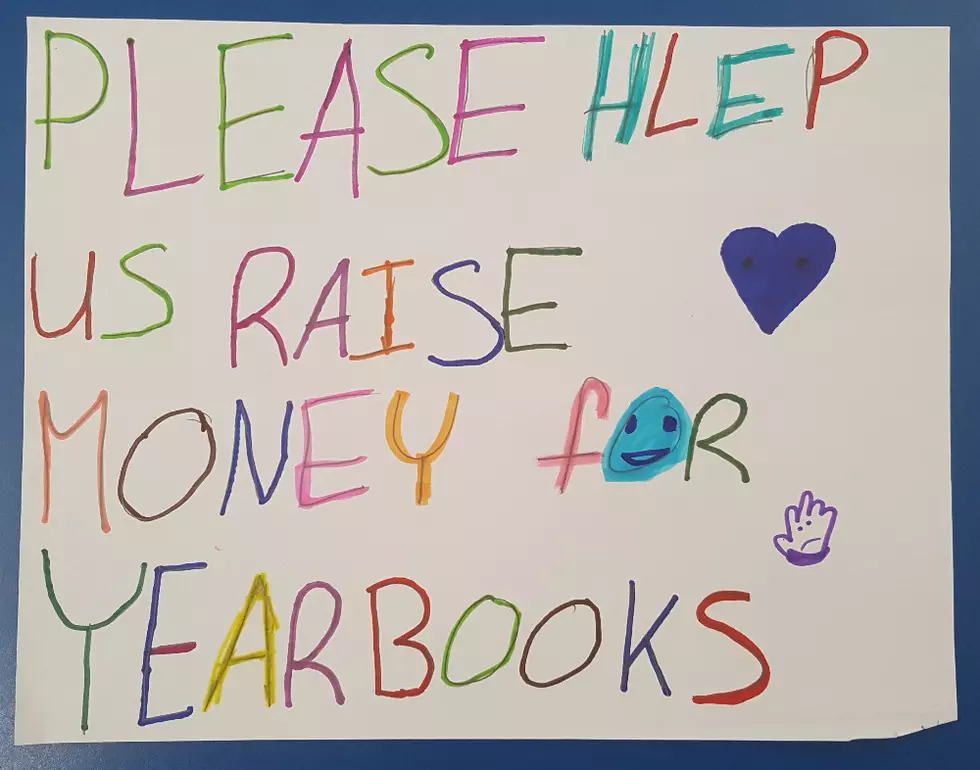 PLEASE HLEP
US RAISE
MONEY fOR
YEARBOOKS